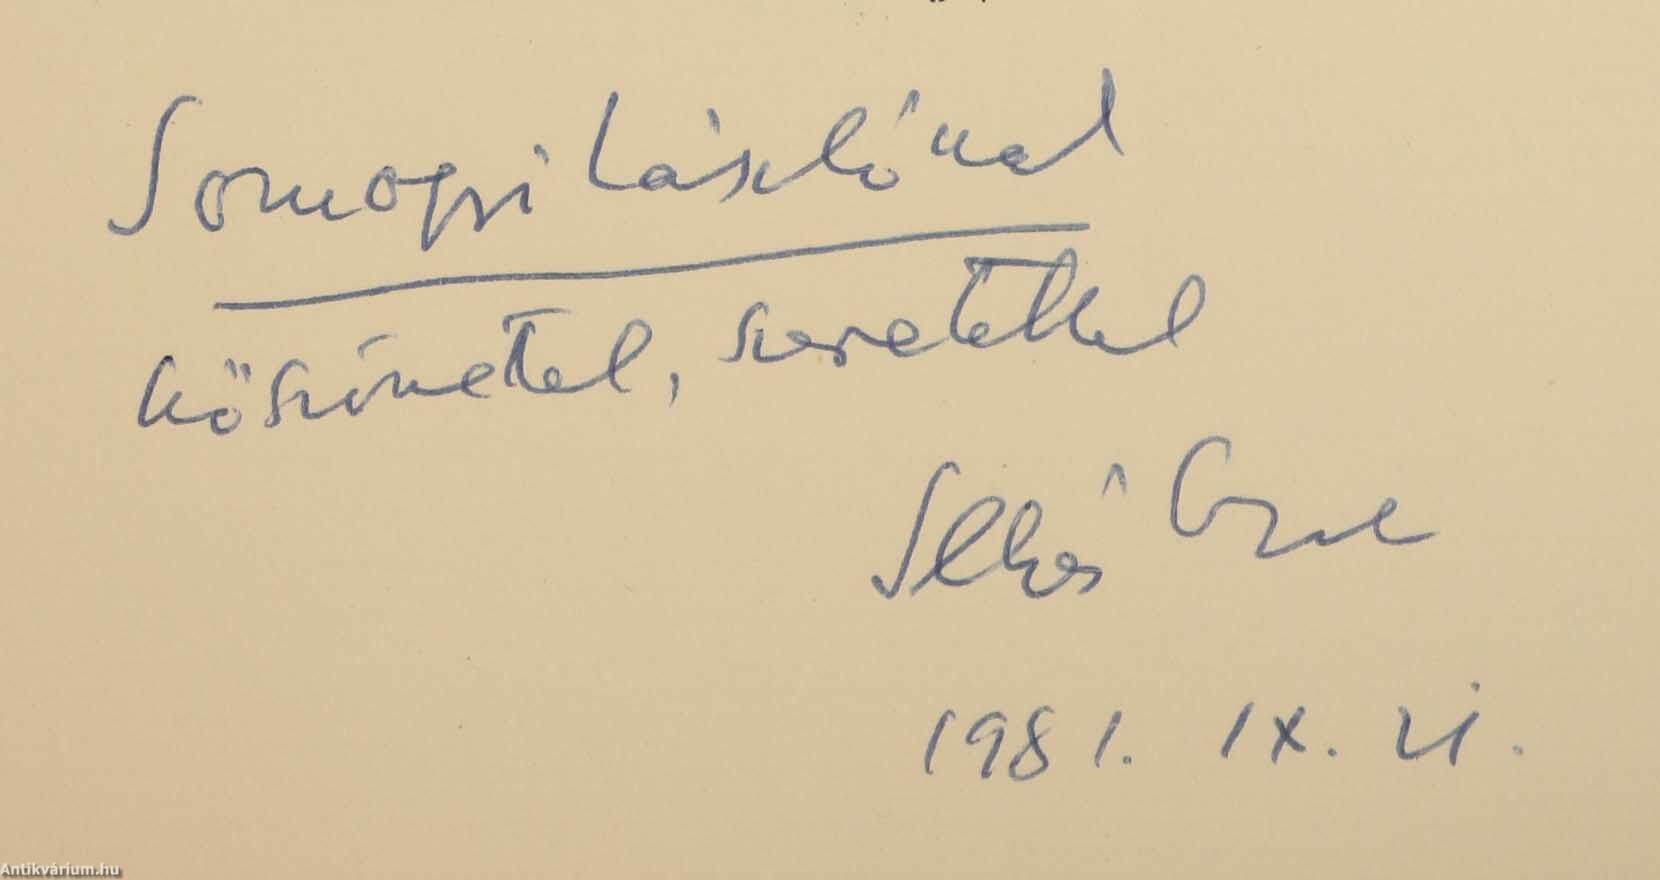 Somogyi Lászlónak
köszönettel, szeretettel
1981. IX. 21.
Antikvárium.hu